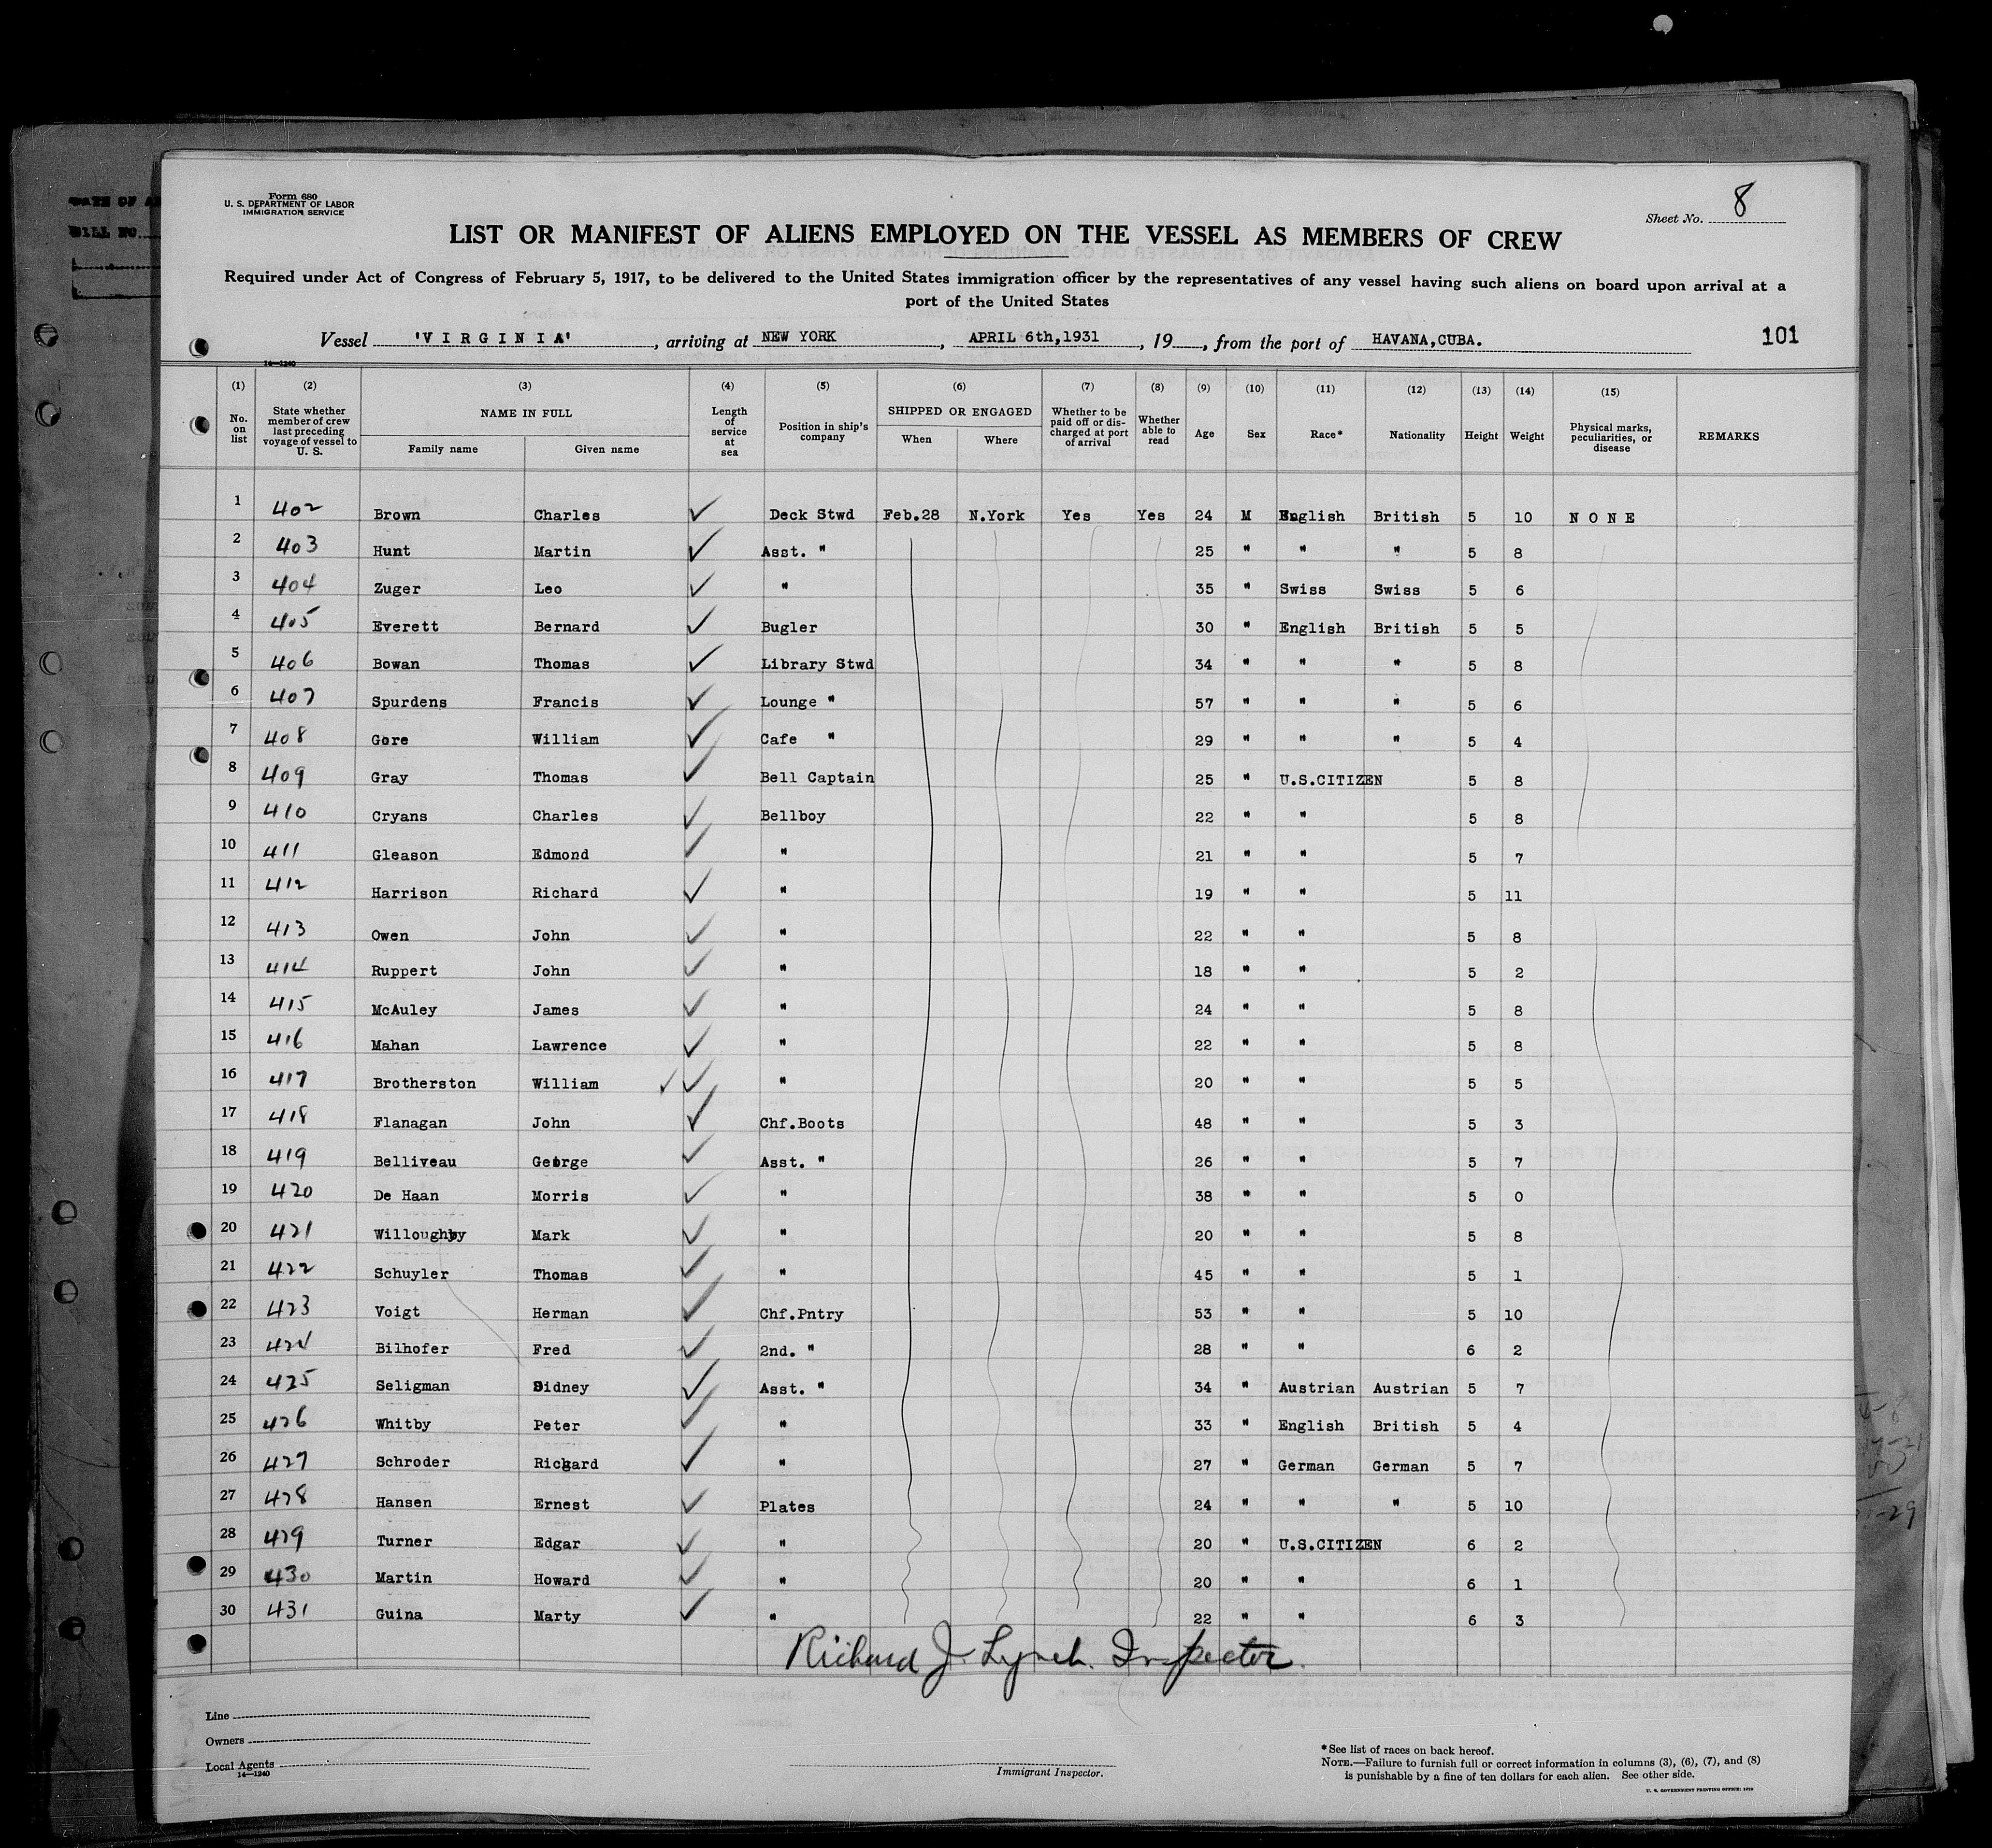 Form 680
U. S. DEPARTMENT OF LABOR
IMMIGRATION SERVICE
Sheet No. 8
LIST OR MANIFEST OF ALIENS EMPLOYED ON THE VESSEL AS MEMBERS OF CREW
Required under Act of Congress of February 5, 1917, to be delivered to the United States immigration officer by the representatives of any vessel having such aliens on board upon arrival at a
port of the United States
Vessel 'V I R G I N I A' , arriving at NEW YORK , APRIL 6th,1931 , 19 , from the port of HAVANA,CUBA. 101
14—1240
(1) (2) (3) (4) (5) (6) (7) (8) (9) (10) (11) (12) (13) (14) (15)
No. on list State whether member of crew last preceding voyage of vessel to U. S. NAME IN FULL Family name Given name Length of service at sea Position in ship's company SHIPPED OR ENGAGED When Where Whether to be paid off or discharged at port of arrival Whether able to read Age Sex Race* Nationality Height Weight Physical marks, peculiarities, or disease REMARKS
1 402 Brown Charles ✓ Deck Stwd Feb.28 N.York Yes Yes 24 M English British 5 10 N O N E
2 403 Hunt Martin ✓ Asst. " 25 " " " 5 8
3 404 Zuger Leo ✓ " 35 " Swiss Swiss 5 6
4 405 Everett Bernard ✓ Bugler 30 " English British 5 5
5 406 Bowan Thomas ✓ Library Stwd 34 " " " 5 8
6 407 Spurdens Francis ✓ Lounge " 57 " " " 5 6
7 408 Gore William ✓ Cafe " 29 " " " 5 4
8 409 Gray Thomas ✓ Bell Captain 25 " U.S.CITIZEN 5 8
9 410 Cryans Charles ✓ Bellboy 22 " " 5 8
10 411 Gleason Edmond ✓ " 21 " " 5 7
11 412 Harrison Richard ✓ " 19 " " 5 11
12 413 Owen John ✓ " 22 " " 5 8
13 414 Ruppert John ✓ " 18 " " 5 2
14 415 McAuley James ✓ " 24 " " 5 8
15 416 Mahan Lawrence ✓ " 22 " " 5 8
16 417 Brotherston William ✓ ✓ " 20 " " 5 5
17 418 Flanagan John ✓ Chf.Boots 48 " " 5 3
18 419 Belliveau George ✓ Asst. " 26 " " 5 7
19 420 De Haan Morris ✓ " 38 " " 5 0
20 421 Willoughby Mark ✓ " 20 " " 5 8
21 422 Schuyler Thomas ✓ " 45 " " 5 1
22 423 Voigt Herman ✓ Chf.Pntry 53 " " 5 10
23 424 Bilhofer Fred ✓ 2nd. " 28 " " 6 2
24 425 Seligman Sidney ✓ Asst. " 34 " Austrian Austrian 5 7
25 426 Whitby Peter ✓ " 33 " English British 5 4
26 427 Schroder Richard ✓ " 27 " German German 5 7
27 428 Hansen Ernest ✓ Plates 24 " " " 5 10
28 429 Turner Edgar ✓ " 20 " U.S.CITIZEN 6 2
29 430 Martin Howard ✓ " 20 " " 6 1
30 431 Guina Marty ✓ " 22 " " 6 3
Richard J. Lynch. Inspector.
Line
Owners
Local Agents
14—1240
Immigrant Inspector.
*See list of races on back hereof.
NOTE.—Failure to furnish full or correct information in columns (3), (6), (7), and (8)
is punishable by a fine of ten dollars for each alien. See other side.
U. S. GOVERNMENT PRINTING OFFICE: